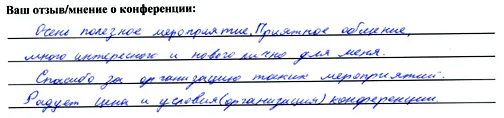 Ваш отзыв/мнение о конференции:
Очень полезное мероприятие, Приятное общение,
много интересного и нового лично для меня.
Спасибо за организацию таких мероприятий.
Радует цена и условия (организация) конференции.